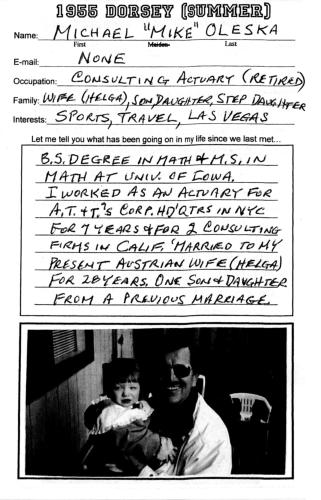 1955 DORSEY (SUMMER)
Name: MICHAEL "MIKE" OLESKA
First Maiden Last
E-mail: NONE
Occupation: CONSULTING ACTUARY (RETIRED)
Family: WIFE (HELGA), SON, DAUGHTER, STEP DAUGHTER
Interests: SPORTS, TRAVEL, LAS VEGAS
Let me tell you what has been going on in my life since we last met...
B.S. DEGREE IN MATH & M.S. IN
MATH AT UNIV. OF IOWA.
I WORKED AS AN ACTUARY FOR
A.T. & T.'S CORP. HD'QTRS IN NYC
FOR 7 YEARS & FOR 2 CONSULTING
FIRMS IN CALIF. MARRIED TO MY
PRESENT AUSTRIAN WIFE (HELGA)
FOR 28 YEARS. ONE SON & DAUGHTER
FROM A PREVIOUS MARRIAGE.